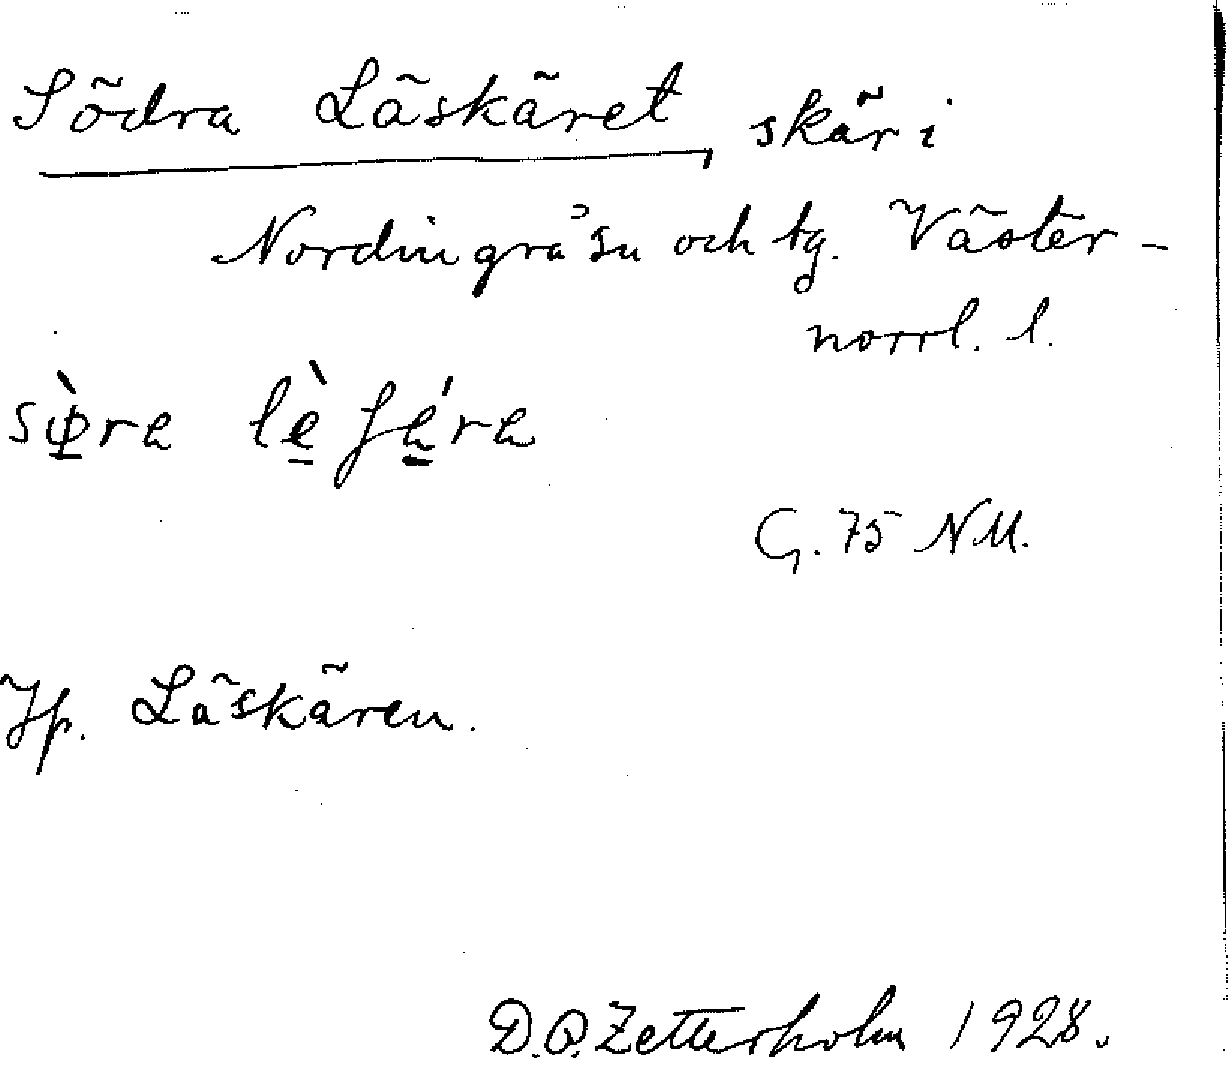 Södra Läskäret, skär i
Nordingrå sn och tg. Väster-
norrl. l.
sø̀ra lè̱ʃá̱ra
G. 75 NM.
Jfr. Läskären.
D.O. Zetterholm 1928.